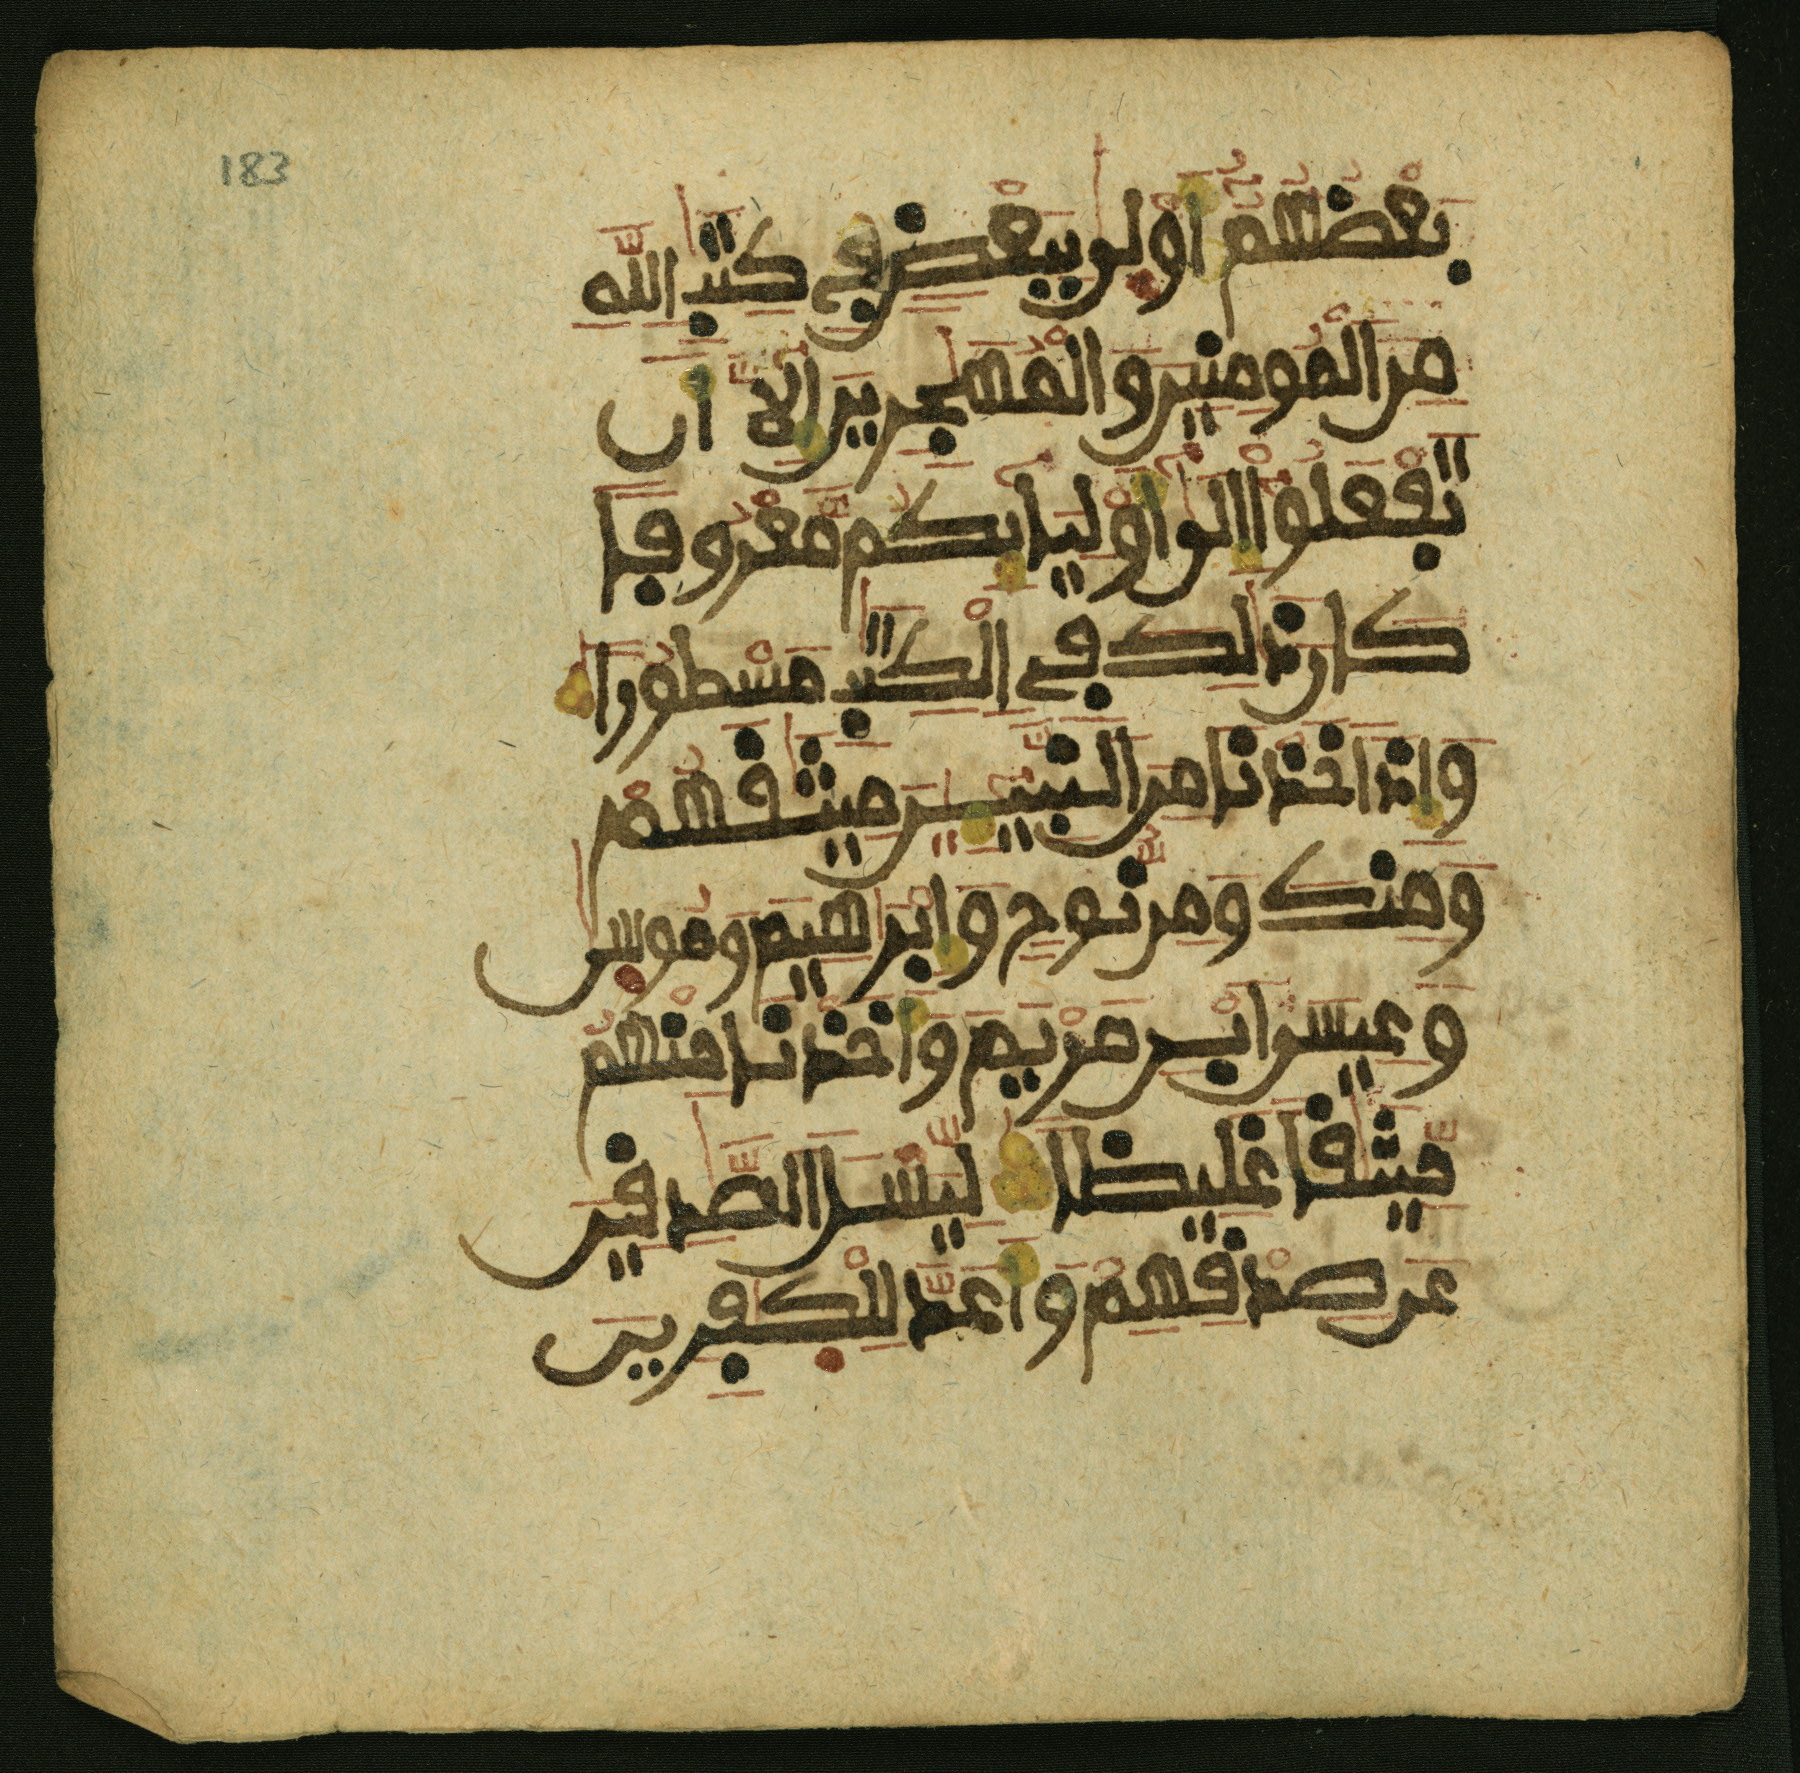 183
بَعْضُهُمُۥٓ أَوْلَىٰ بِبَعْضٍ فِے كِتَٰبِ اِ۬للَّهِ
مِنَ اَ۬لْمُومِنِينَ وَالْمُهَٰجِرِينَ إِلَّآ أَن
تَفْعَلُوٓاْ إِلَىٰٓ أَوْلِيَآئِكُم مَّعْرُوفاٗ
كَانَ ذَٰلِكَ فِے اِ۬لْكِتَٰبِ مَسْطُوراٗ
وَإِذَ اَخَذْنَا مِنَ اَ۬لنَّبِيٓـِٕينَ مِيثَٰقَهُمْ
وَمِنكَ وَمِن نُّوحٍ وَإِبْرَٰهِيمَ وَمُوسَىٰ
وَعِيسَى اَ۪بْنِ مَرْيَمَ وَأَخَذْنَا مِنْهُم
مِّيثَٰقاً غَلِيظاٗ لِّيَسْـَٔلَ اَ۬لصَّٰدِقِينَ
عَن صِدْقِهِمْ وَأَعَدَّ لِلْكَٰفِرِينَ